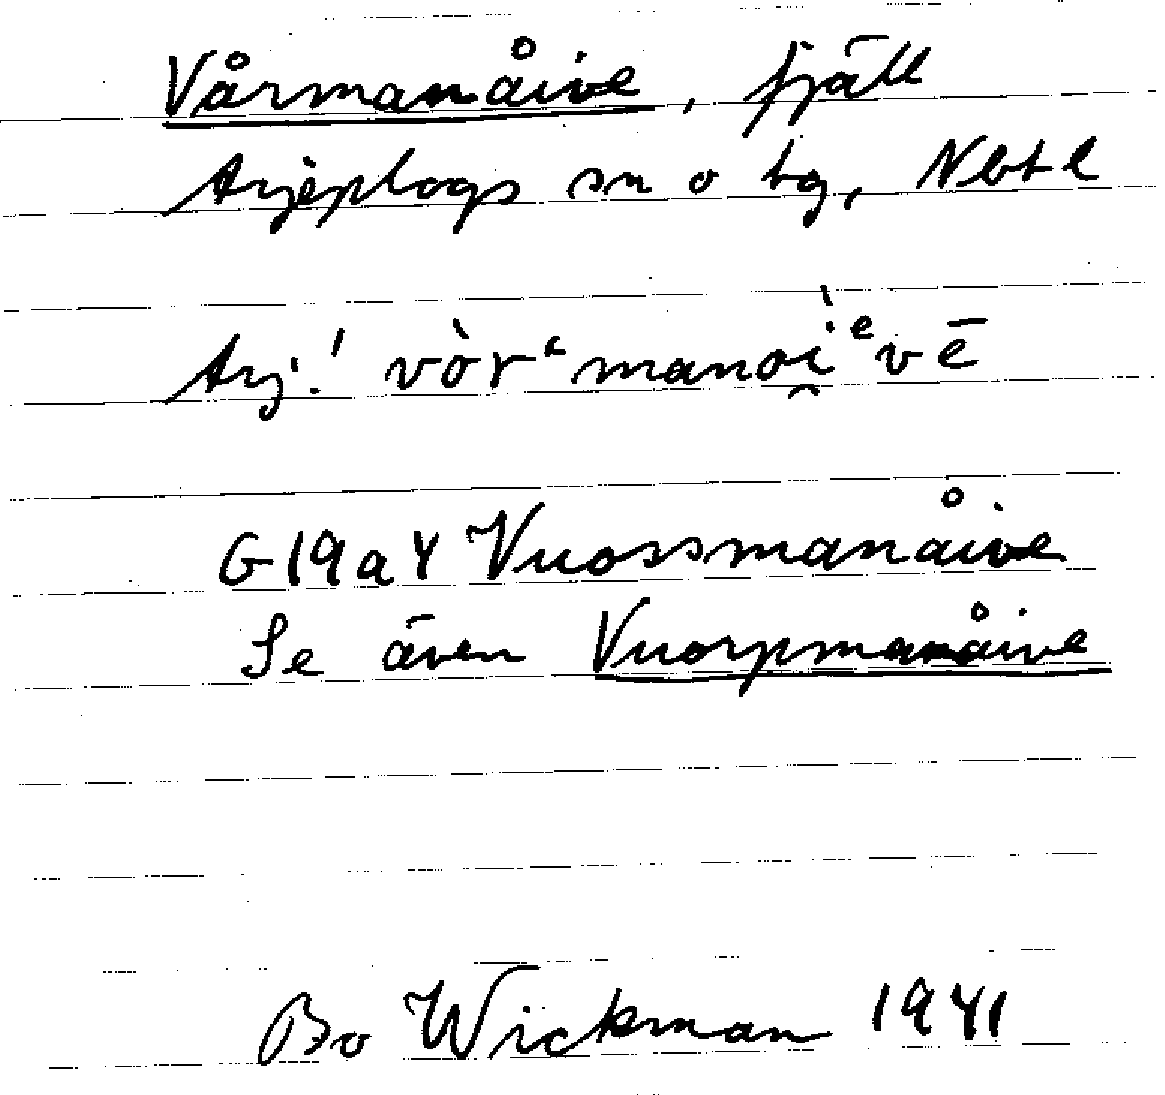 Vårmanåive, fjäll
Arjeplogs sn o tg, Nbtl
Arj.! vòrʻmanoì̯ᵉvē
G19a4 Vuossmanåive
Se även Vuorpmanåive
Bo Wickman 1941